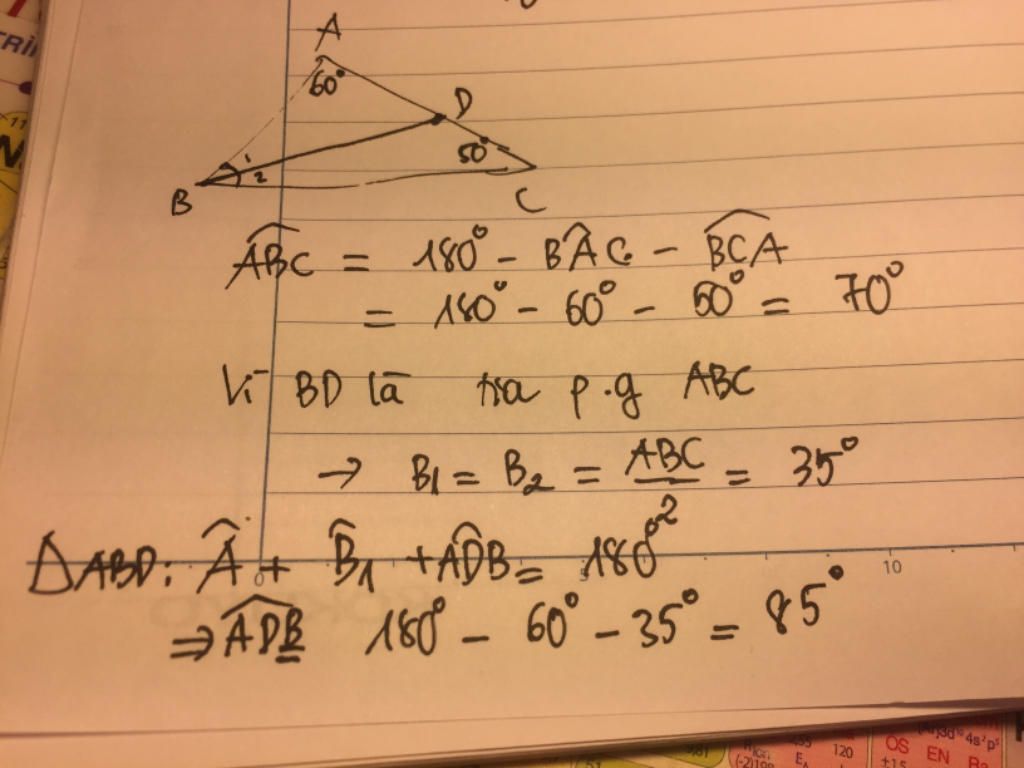 A
60°
D
50°
1
2
B
C
ABC = 180° - BAC - BCA
= 180° - 60° - 50° = 70°
Vì BD là tia p.g ABC
→ B1 = B2 = ABC/2 = 35°
ΔABD: Â + B̂1 + ADB = 180°
0
10
⇒ ADB 180° - 60° - 35° = 85°
3d¹⁰4s²p⁵
120
OS EN